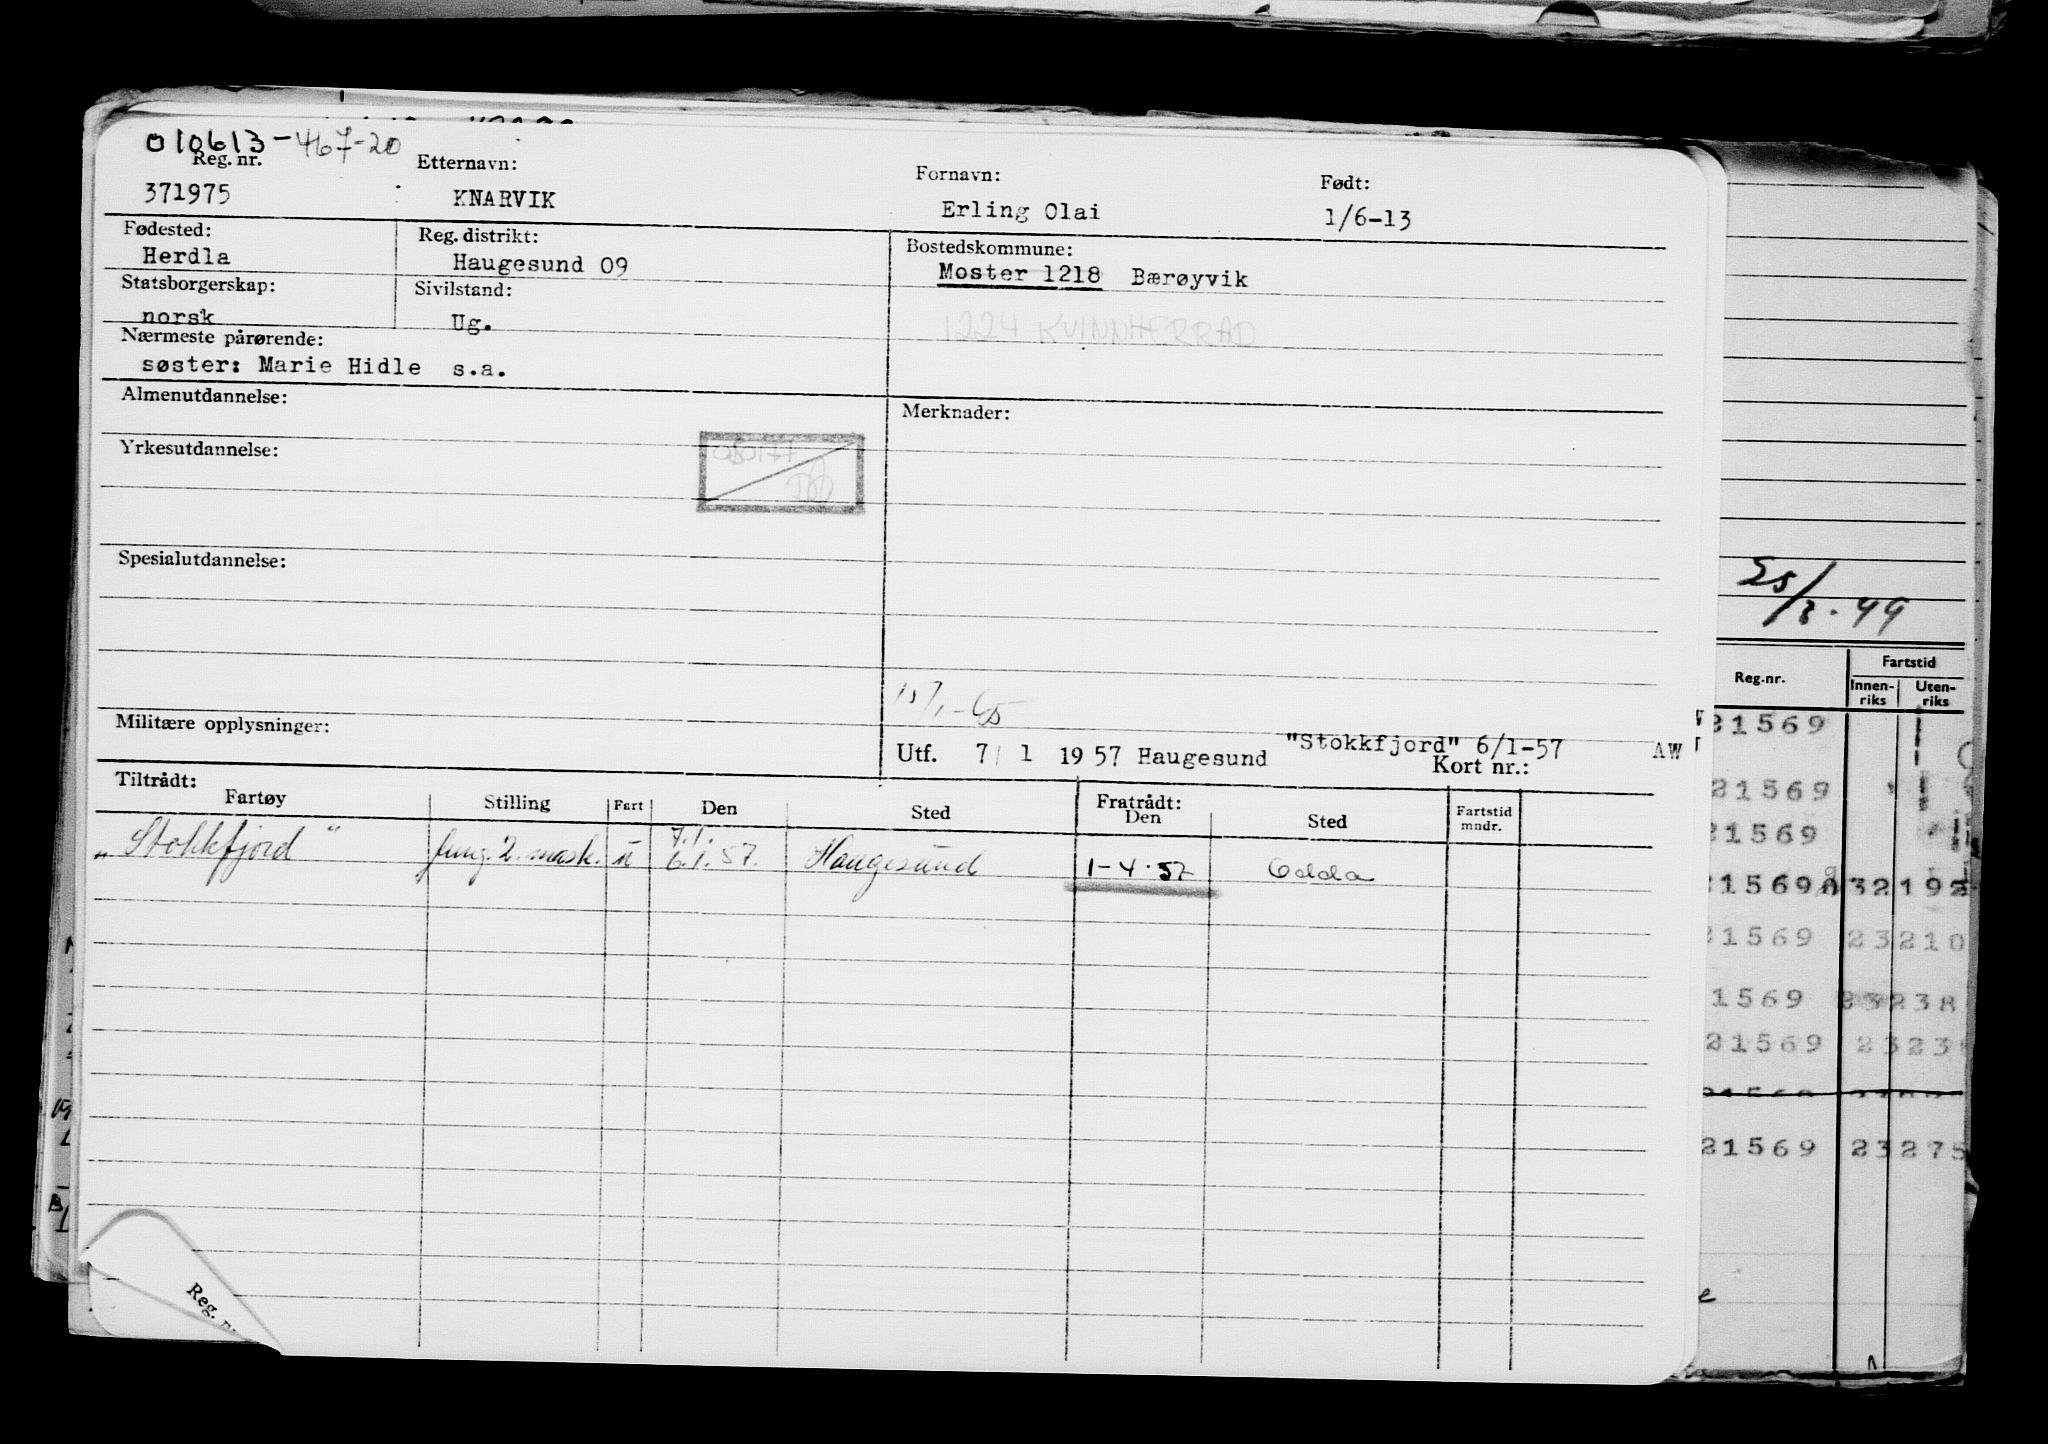 010613-467-20
Reg. nr. Etternavn: Fornavn: Født:
371975 KNARVIK Erling Olai 1/6-13
Fødested: Reg. distrikt: Bostedskommune:
Herdla Haugesund 09 Moster 1218 Bærøyvik
Statsborgerskap: Sivilstand:
norsk Ug. 1224 KVINNHERRAD
Nærmeste pårørende:
søster: Marie Hidle s.a.
Almenutdannelse: Merknader:
Yrkesutdannelse:
Spesialutdannelse:
15/1-65
Militære opplysninger:
"Stokkfjord" 6/1-57
Utf. 7/ 1 1957 Haugesund Kort nr.: AW
Tiltrådt: Fratrådt:
Fartøy Stilling Fart Den Sted Den Sted Fartstid mndr.
7.1.
„Stokkfjord" fung. 2. mask. u 6.1.57. Haugesund 1-4.57 Odda
Reg. n
49
Reg.nr. Fartstid
Innen-riks Uten-riks
21569
21569
21569
21569 32 192
21569 23210
1569 23238
21569 2323
21569 23275